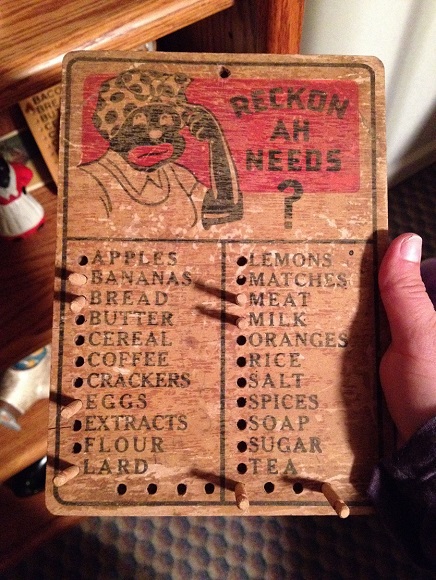 RECKON
AH
NEEDS
?
APPLES
BANANAS
BREAD
BUTTER
CEREAL
COFFEE
CRACKERS
EGGS
EXTRACTS
FLOUR
LARD
LEMONS
MATCHES
MEAT
MILK
ORANGES
RICE
SALT
SPICES
SOAP
SUGAR
TEA